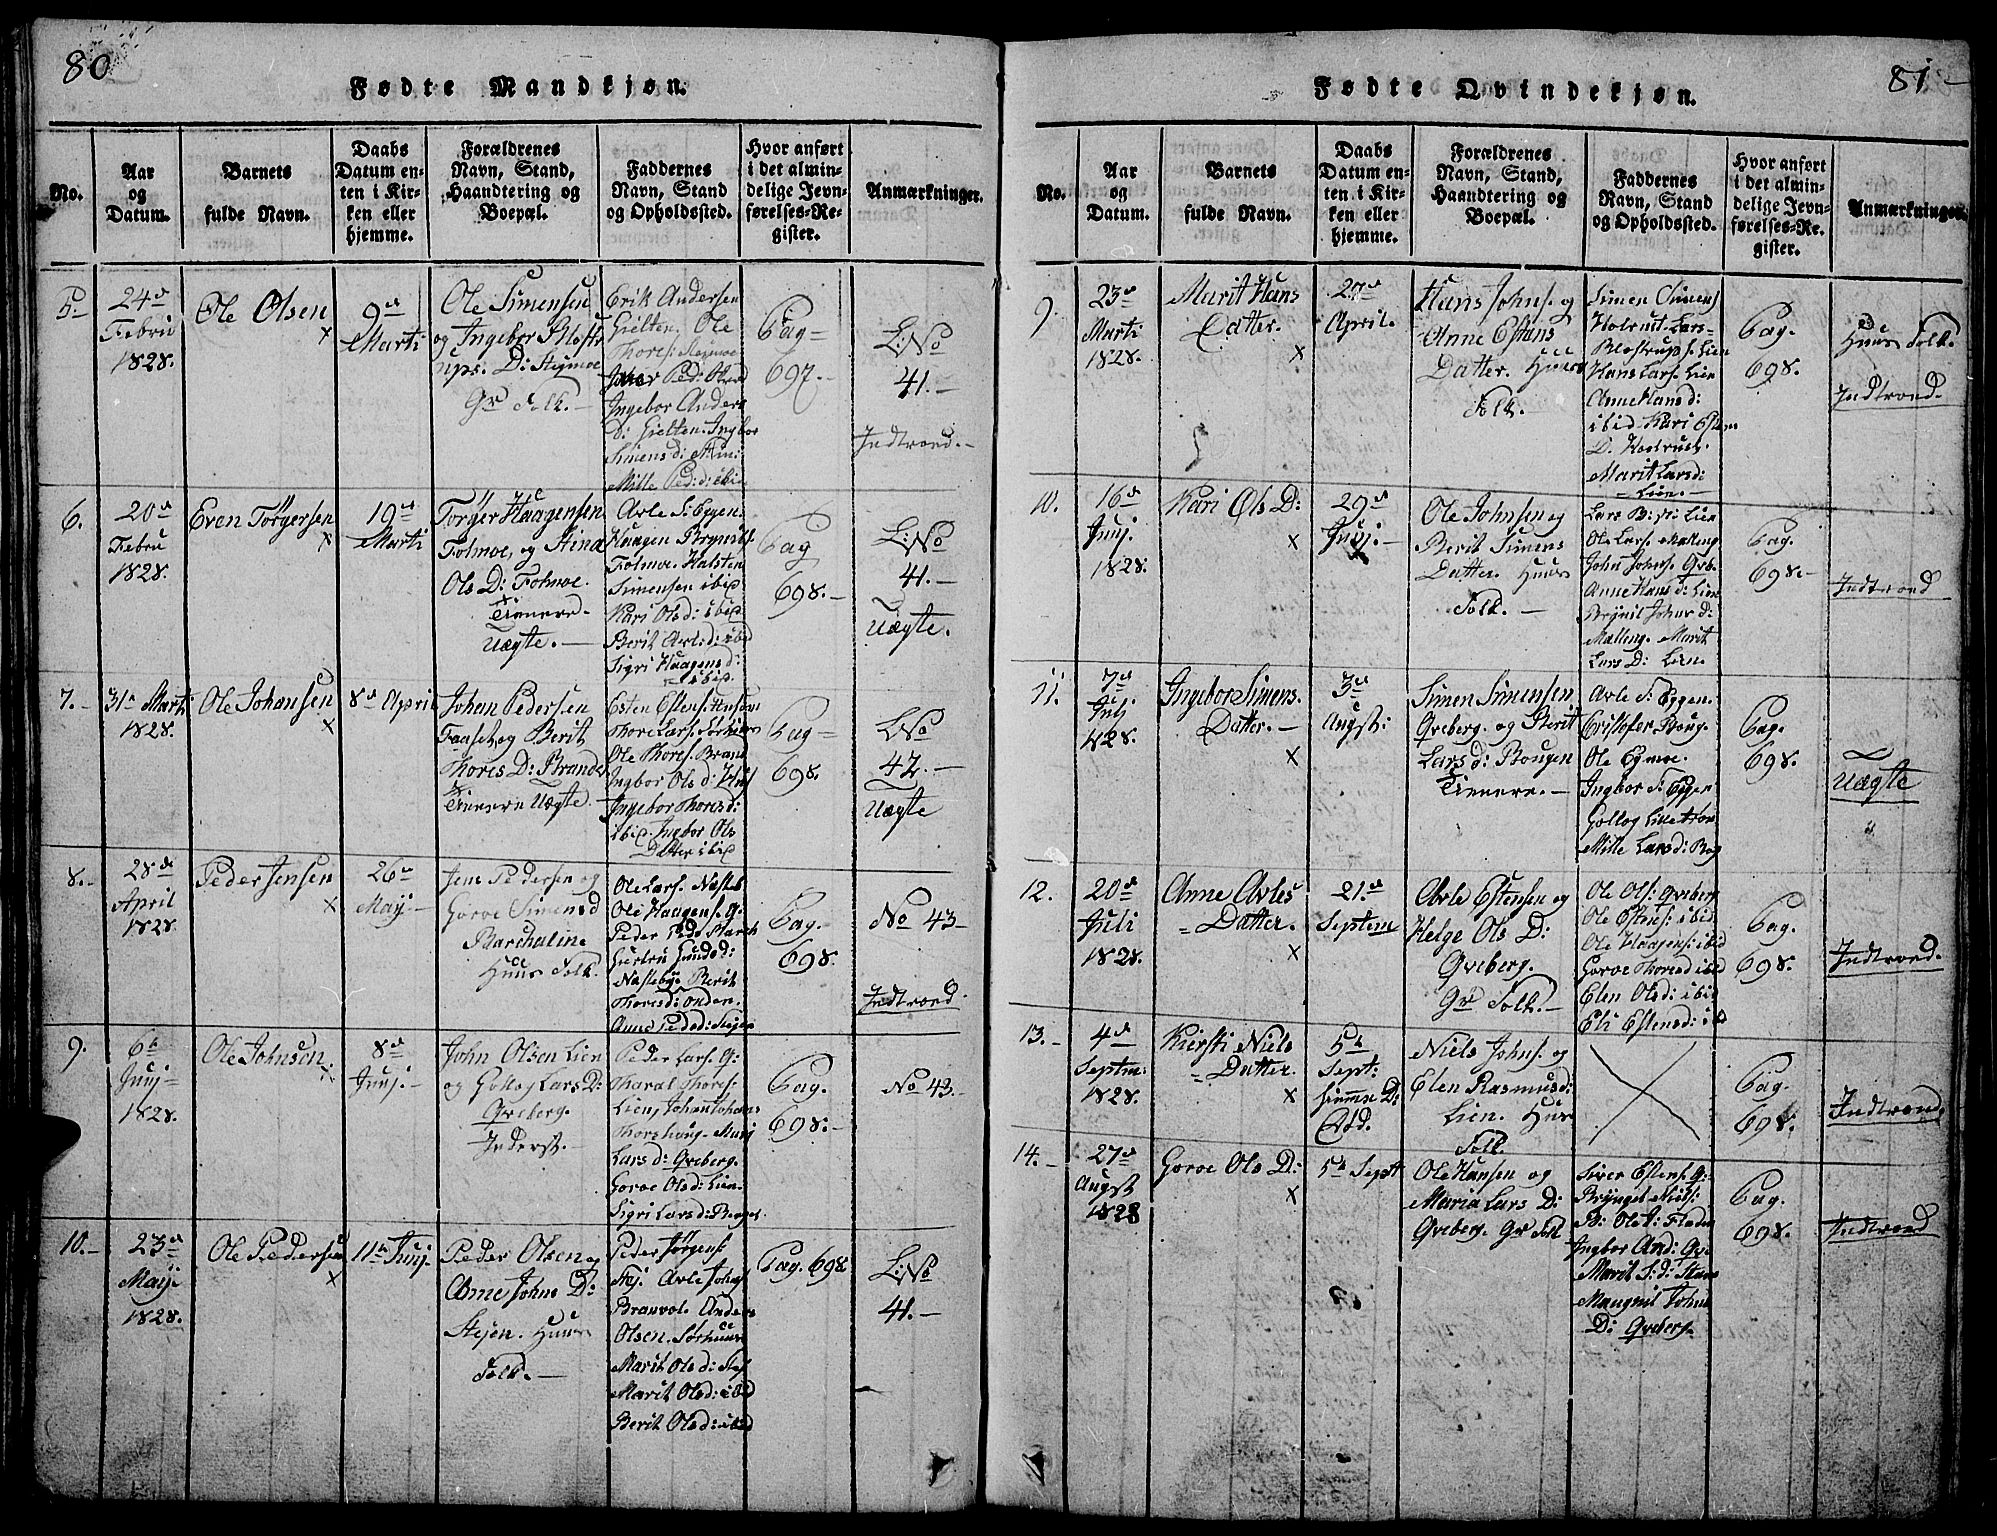 80
Fødte Mandkjøn.
No.
Aar
og
Datum.
Barnets
fulde Navn.
Daabs
Datum en-
ten i Kir-
ken eller
hjemme.
Forældrenes
Navn, Stand,
Haandtering og
Boepæl.
Faddernes
Navn, Stand
og Opholdssted.
Hvor anført
i det almin-
delige Jevn-
førelses-Re-
gister.
Anmærkninger.
5.
24d
Febru
1828.
Ole Olsen
x
9d
Marti
Ole Simensen
og Ingebor
D: Stejmoe
Gr Folk.
Erik Andersen
Gielten, Ole
Thores: Stejmoe
Ped:
Ingebor Anders
D: Gielten. Ingbor
Simensd:
Mille Ped:d: ibid
Pag
697.
L: No
41.
Indtroed.
6.
20d
Febru
1828.
Even Törgersen
x
19d
Marti
Torger Haagensen
Folmoe, og Stina
Ols D: Folmoe.
Tienere
Uægte.
Arle S: Eggen
Haagen Brynild
Folmoe. Halsten
Simensen ibid
Kari Olsd: ibid
Berit Arlsd: ibid
Sigri Haagensd:
ibid.
Pag
698.
L: No
41.
Uægte.
7.
31d Marti
1828.
Ole Johansen
x
8d April
Johan Pedersen
Faaset og Berit
Thores D: Brander
Tienere Uægte.
Esten Estens:
Thore Lars:
Ole Thores: Brand
Ingbor Ols d:
Ingebor Thoresd:
ibid. Ingbor Ols
Datter ibid
Pag
698.
L No
42.
Uægte
8.
28d
April
1828
Peder Jensen
x
26d
Maji
Jens Pedersen og
Gorve Simensd
Barchaline
Huus Folk.
Ole Lars:
Ole Haagens: G:
Peder Peds
d:
Berit
Thoresd:
Anne Pedsd:
Pag.
698.
No 43
Indtroed.
9.
6d
Junj
1828.
Ole Johnsen.
x
8d
Junj.
John Olsen Lien
og Golloy Lars D:
Qveberg.
Inderst.
Peder Lars: G:
Haral Thores:
Lien, Johan Johans
Thorshoug. Marj
Lars d: Qveberg.
Gorve Olsd: Lien.
Sigri Larsd:
Pag.
698.
No 43.
10.
23d
Maij.
1828.
Ole Pedersen
x
11d Junj.
Peder Olsen og
Anne Johns D:
Stejen. Huus
Folk.
Peder Jørgens:
Stej. Arle Johns:
Branvol. Anders
Olsen. Sørhuus
Marit Olsd:
Marit Olsd: ibid
Berit Olsd: ibid
Pag. 698
L: No
41.
81
Fødte Qvindekjøn.
No.
Aar
og
Datum.
Barnets
fulde Navn.
Daabs
Datum en-
ten i Kir-
ken eller
hjemme.
Forældrenes
Navn, Stand,
Haandtering og
Boepæl.
Faddernes
Navn, Stand
og Opholdssted.
Hvor anført
i det almin-
delige Jevn-
førelses-Re-
gister.
Anmærkninger.
9.
23d
Marti
1828.
Marit Hans
Datter.
x
27d
April.
Hans Johns: og
Anne Estens
Datter. Huus
Folk.
Simen Simens
Lars
Lien
Hans Lars: Lien
Anne Hans d:
ibid Kari Estens
D.
Marit Larsd:
Lien.
Pag.
698.
Huus Folk.
Indtroed.
10.
16d
Junj.
1828.
Kari Ols D:
x
29d
Junj.
x
Ole Johnsen og
Berit Simens
Datter. Huus
Folk.
Lars Lien
Ole Lars: Malling
John Johns: Qvb.
Anne Hans d: Lien
Brynil Johns d:
Malling. Marit
Lars D: Lien.
Pag.
698.
Indtroed
11.
7d
Juli
1828.
Ingebor Simens.
Datter.
x
3d
Augst:
Simen Simensen
Qveberg. og Berit
Lars d: Bougen
Tienere.
Arle S: Eggen.
Cristofer Boug.
Ole Egmoe.
Ingbor S: Eggen
Golloy Lilletron
Mille Larsd: Bog
Pag.
698.
Uægte
12.
20d
Juli
1828.
Anne Arles
Datter.
x
21d
Septem
Arle Estensen og
Helge Ols D:
Qveberg.
Gr Folk.
Ole Ols: Qveberg
Ole Estens: ibid
Ole Haagens: ibid
Gorve Thoresd ibid
Elen Olsd: ibid
Eli Estensd: ibid
Pag.
698.
Indtroed.
13.
4d
Septm:
1828.
Kiersti Niels
Datter.
x
5d
Sept:
hiemme D:
Død.
Niels Johns: og
Elen Rasmusd:
Lien. Huus
Folk.
Pag.
698.
Indtroed.
14.
27d
Augst
1828
Gorve Ols D:
x
5d Sept
Ole Hansen og
Maria Lars D:
Qveberg. Gr Fol
Siver Estens: G:
Brynget Niels:
Ingbor And: Qv.
Marit S: d:
Maugnil Johns
D: Qveberg.
Pag.
698.
Indtroed